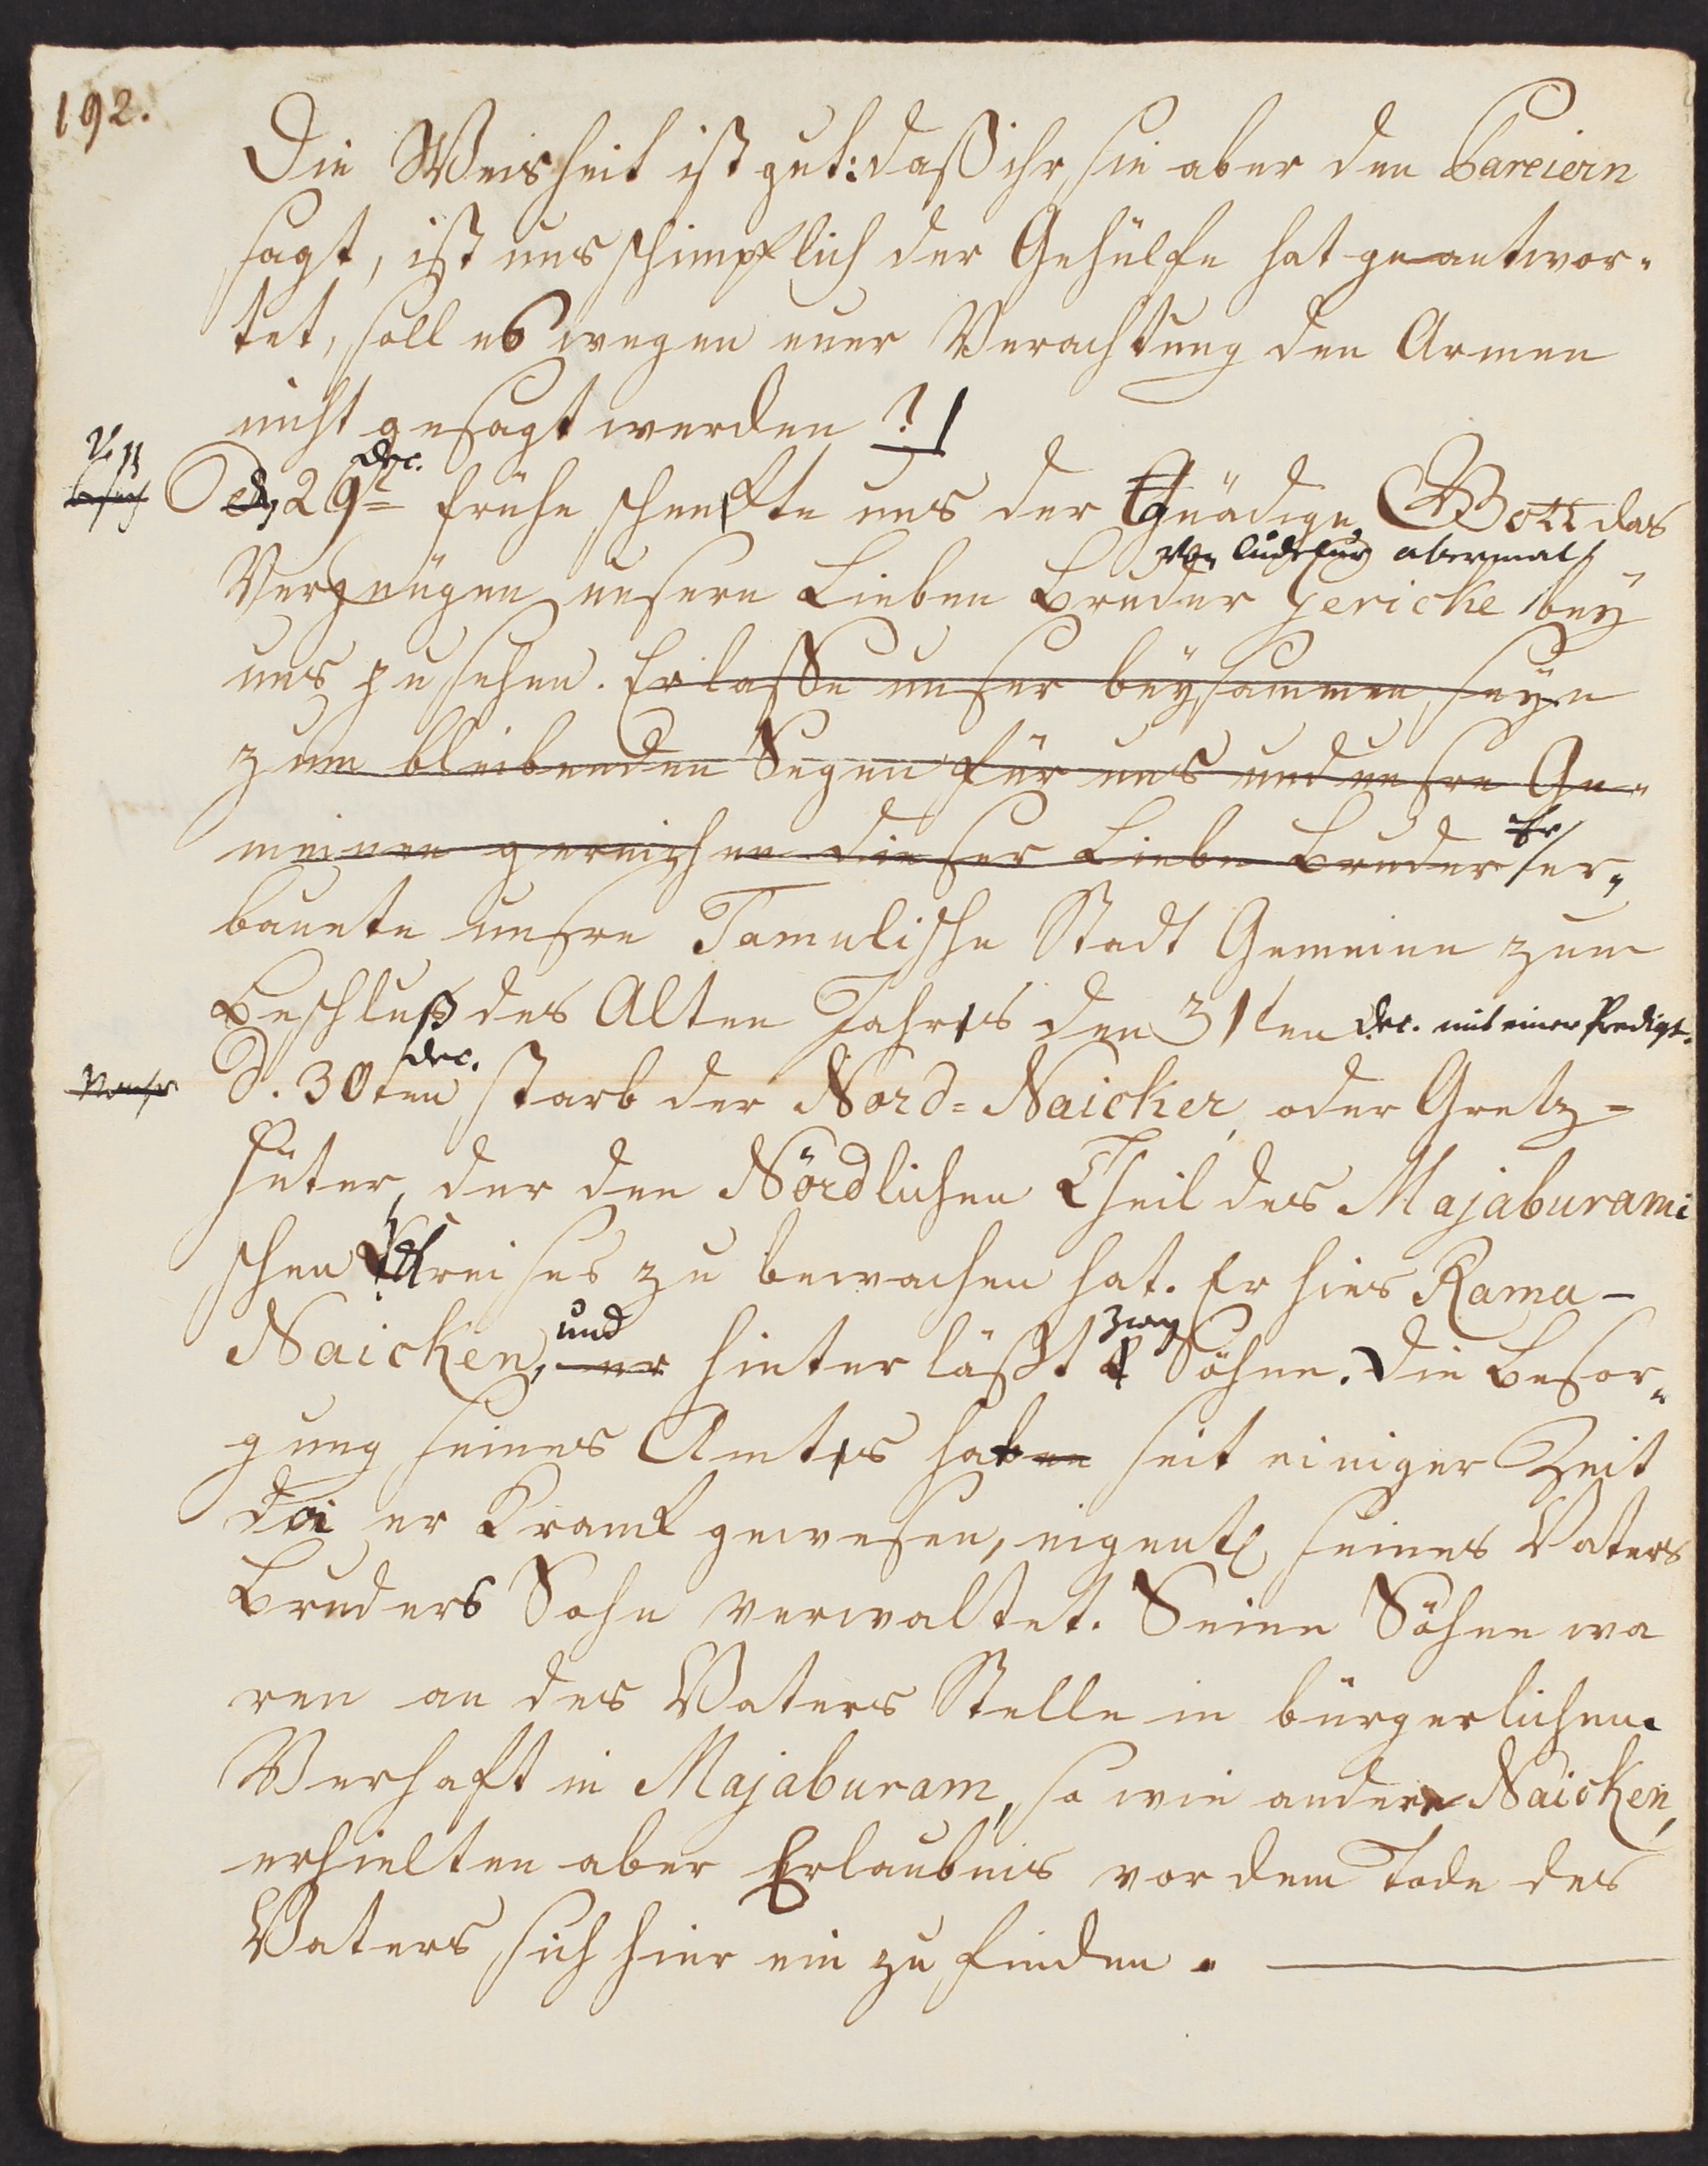 192.
Die Weisheit ist gut: daß ihr sie aber den Bareiern
sagt, ist uns schimpflich der Gehülfe hat geantwor-
tet, soll es wegen euer Verachtung den Armen
nicht gesagt werden?
Dec.
Den 29st frühe schenkte uns der Gnädige GOtt das
von Cudelur abermals
Vergnügen unsern Lieben Bruder Jericke bey
uns zu sehen. Er lasse unser beysammen seyn
zum bleibenden Segen für uns und unsre Ge-
meinen gereichen dieser Liebe Bruder Er er-
bauete unsre Tamulische Stadt Gemeine zum
Beschluß des Alten Jahres den 31ten Dec. mit einer Predigt.
Dec.
D. 30ten starb der Nord-Naicker, oder Gretz-
hüter, der den Nördlichen Theil des Majaburami
schen Kreises zu bewachen hat. Er hies Rama-
und zwey
Naicken, er hinterläßt 2 Söhne. Die Besor-
gung seines Amtes haben seit einiger Zeit
da er Krank gewesen, eigentl seines Vaters
Bruders Sohn verwaltet. Seine Söhne wa
ren an des Vaters Stelle in bürgerlichen
Verhaft in Majaburam, so wie andere Naicken,
erhielten aber Erlaubnis vor dem Tode des
Vaters sich hier ein zu finden.